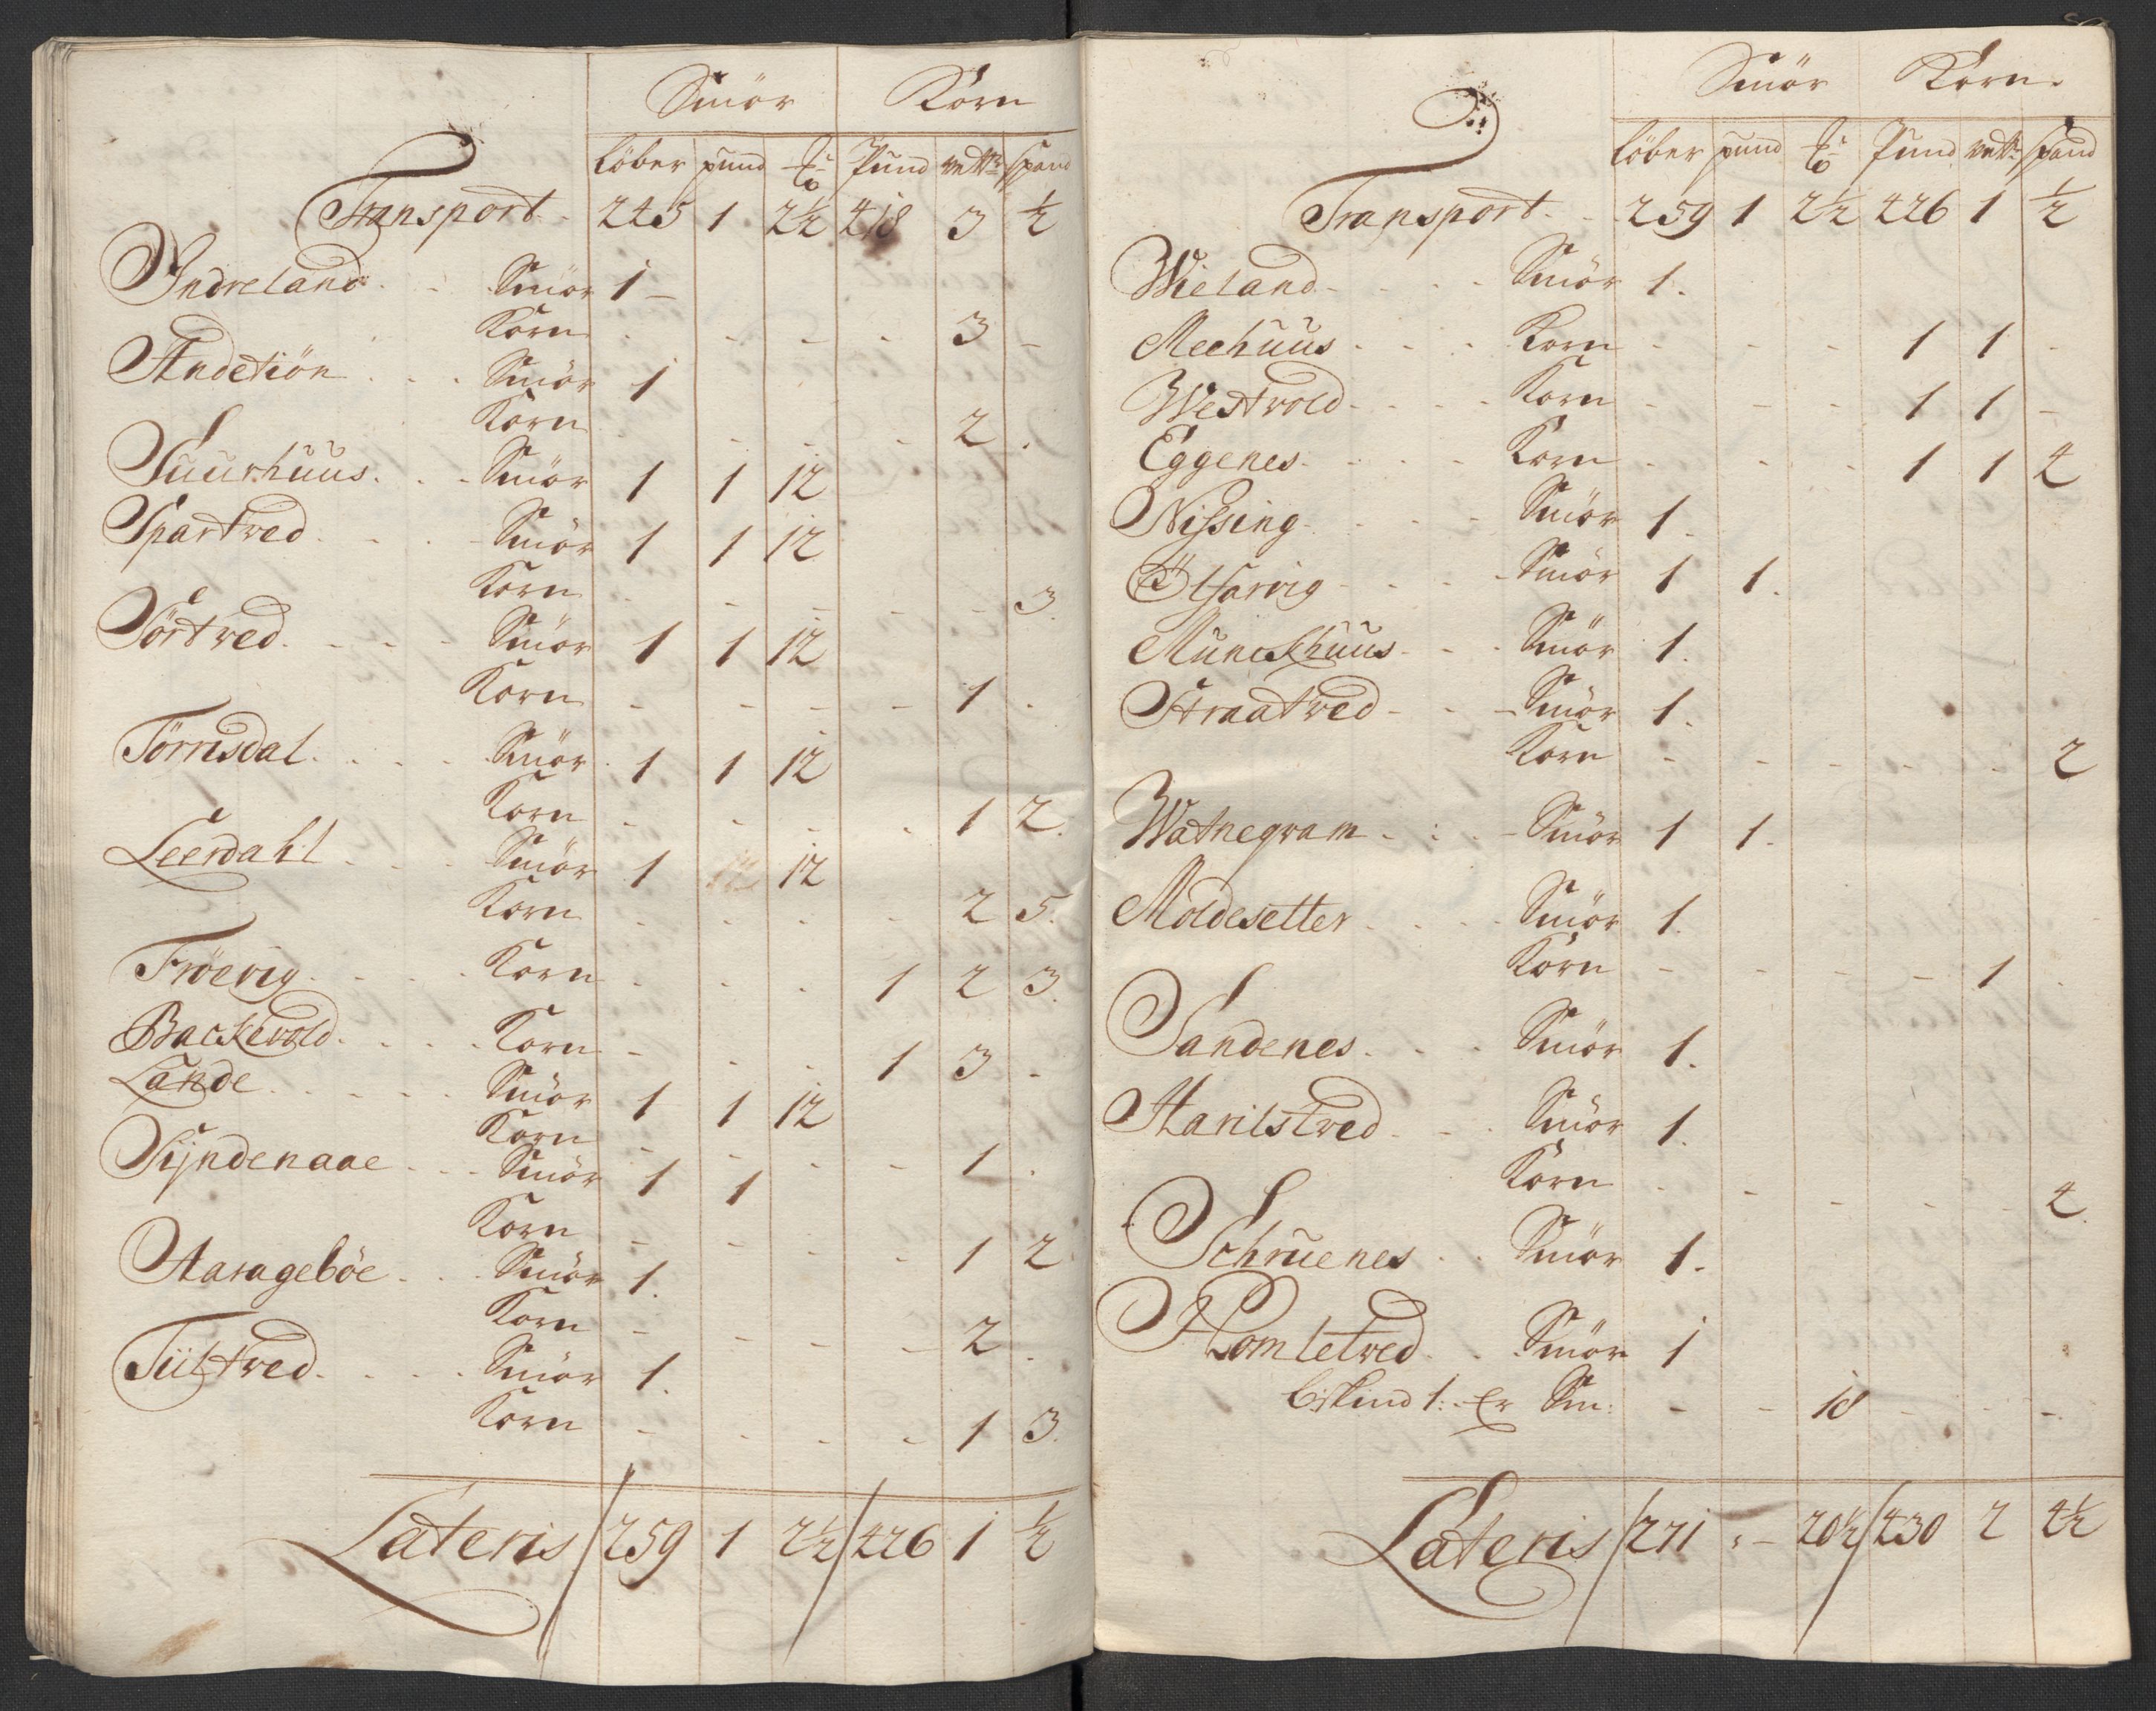 Smör Korn
Löber pund ℔ Pund wett spand
Transport 245 1 2½ 418 3 ½
Indreland Smör 1 –
Korn 3 –
Andetiön Smör 1
Korn 2
Suurhuus Smör 1 1 12
Spartved Smör 1 1 12
Korn 3
Törtved Smör 1 1 12
Korn 1
Törrisdal Smör 1 1 12
Korn 1 2
Leerdahl Smör 1 12
Korn 2 5
Fröevig Korn 1 2 3
Backevold Korn 1 3
Lande Smör 1 1 12
Korn 1
Sÿndenaae Smör 1 1
Korn 1 2
Aarageböe Smör 1
Korn 2
Tiiltved Smör 1
Korn 1 3
Lateris 259 1 2½ 426 1 ½
Smör Korn
Löber pund ℔ Pund wett spand
Transport 259 1 2½ 426 1 ½
Wieland Smör 1
Meehuus Korn 1 1
Westvold Korn 1 1 –
Eggenes Korn 1 1 4
Nissing Smör 1
Ötharvig Smör 1 1
Munckhuus Smör 1
Straatved Smör 1
Korn 2
Watnegram Smör 1 1
Moldesetter Smör 1
Korn 1
Sandenes Smör 1
Harilstved Smör 1
Korn 4
Schruenes Smör 1
Homletved Smör 1
1: Er Sm: 18
Lateris 271 – 20½ 430 2 4½